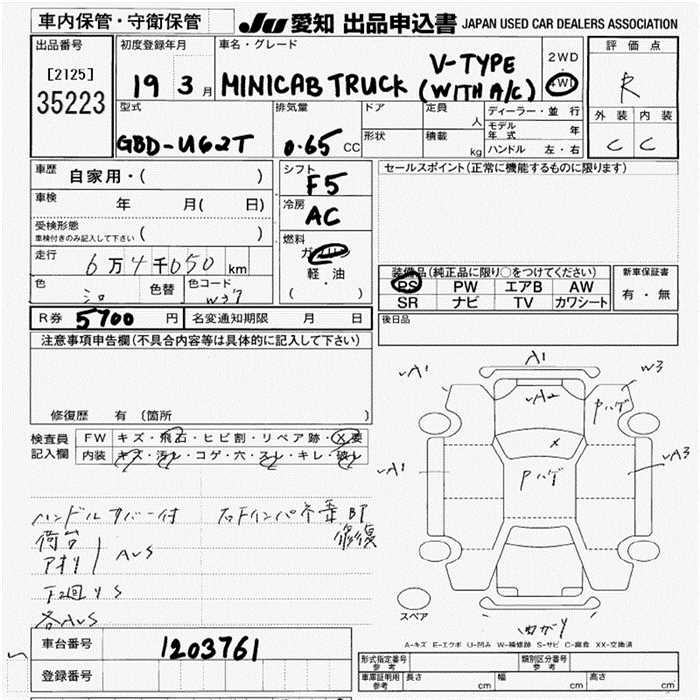 車内保管・守衛保管
JU 愛知 出品申込書 JAPAN USED CAR DEALERS ASSOCIATION
出品番号
[2125]
35223
初度登録年月
19 3 月
車名・グレード
MINICAB TRUCK
V-TYPE
(WITH A/C)
2WD
4WD
評価点
R
外装 内装
C C
型式
GBD-U62T
排気量
0.65 CC
ドア
形状
定員
人
積載
kg
ディーラー・並行
モデル年式 年
ハンドル 左・右
車歴
自家用・( )
車検
年 月( 日)
受検形態
車検付きのみ記入して下さい ( )
走行
6万4千050 km
色
シロ
色替
色コード
W37
シフト
F5
冷房
AC
燃料
ガソリン
軽油
( )
セールスポイント(正常に機能するものに限ります)
装備品(純正品に限り○をつけてください)
PS PW エアB AW
SR ナビ TV カワシート
新車保証書
有・無
R券 5700 円
名変通知期限 月 日
後日品
注意事項申告欄(不具合内容等は具体的に記入して下さい)
修復歴 有 (箇所 )
検査員
記入欄
FW キズ・飛石・ヒビ割・リペア跡・X要
内装 キズ・汚レ・コゲ・穴・スレ・キレ・破レ
ハンドルカバー付
荷台
アオリ
AUS
下廻りS
各AUS
修復
A1
A1
A2
W3
Pハゲ
X
Pハゲ
A1
A3
スペア
A-キズ E-エクボ U-凹み W-補修跡 S-サビ C-腐食 XX-交換済
車台番号
1203761
登録番号
形式指定番号
参考
類別区分番号
参考
車庫証明用
参考
長さ cm
幅 cm
高さ cm